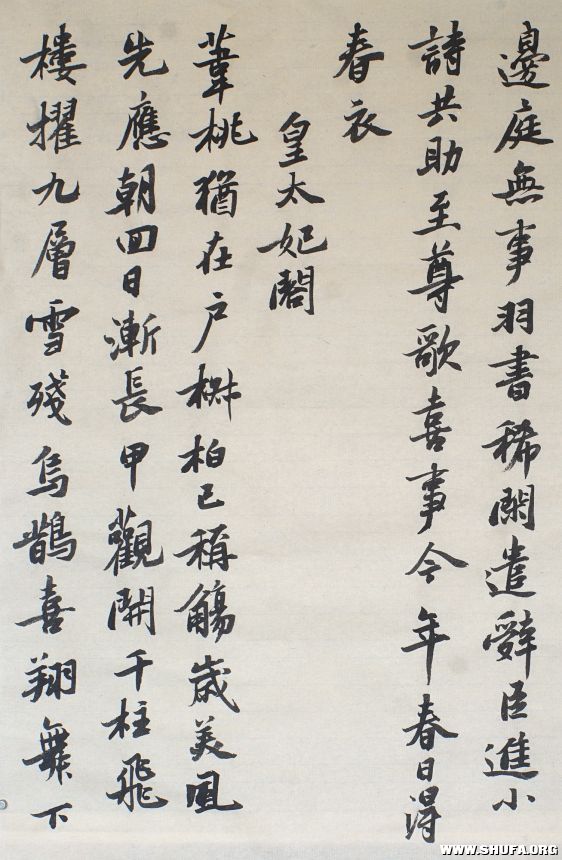 邊庭無事羽書稀閑遣辭臣進小
詩共助至尊歌喜事今年春日得
春衣
皇太妃閣
葦桃猶在戶椒柏已稱觴歲美風
先應朝回日漸長甲觀開千柱飛
樓擢九層雪殘烏鵲喜翔舞下
WWW.SHUFA.ORG